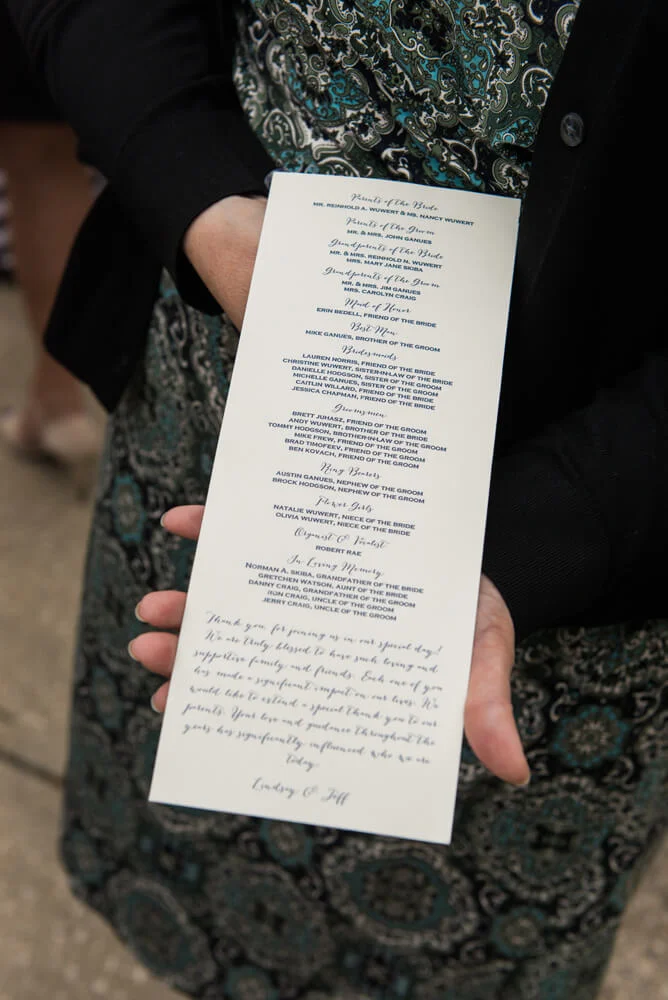 Parents of the Bride
MR. REINHOLD A. WUWERT & MS. NANCY WUWERT
Parents of the Groom
MR. & MRS. JOHN GANUES
Grandparents of the Bride
MR. & MRS. REINHOLD N. WUWERT
MRS. MARY JANE SKIBA
Grandparents of the Groom
MR. & MRS. JIM GANUES
MRS. CAROLYN CRAIG
Maid of Honor
ERIN BEDELL, FRIEND OF THE BRIDE
Best Man
MIKE GANUES, BROTHER OF THE GROOM
Bridesmaids
LAUREN NORRIS, FRIEND OF THE BRIDE
CHRISTINE WUWERT, SISTER-IN-LAW OF THE BRIDE
DANIELLE HODGSON, SISTER OF THE GROOM
MICHELLE GANUES, SISTER OF THE GROOM
CAITLIN WILLARD, FRIEND OF THE BRIDE
JESSICA CHAPMAN, FRIEND OF THE BRIDE
Groomsmen
BRETT JUHASZ, FRIEND OF THE GROOM
ANDY WUWERT, BROTHER OF THE BRIDE
TOMMY HODGSON, BROTHER-IN-LAW OF THE GROOM
MIKE FREW, FRIEND OF THE GROOM
BRAD TIMOFEEV, FRIEND OF THE GROOM
BEN KOVACH, FRIEND OF THE GROOM
Ring Bearers
AUSTIN GANUES, NEPHEW OF THE GROOM
BROCK HODGSON, NEPHEW OF THE GROOM
Flower Girls
NATALIE WUWERT, NIECE OF THE BRIDE
OLIVIA WUWERT, NIECE OF THE BRIDE
Organist & Vocalist
ROBERT RAE
In Loving Memory
NORMAN A. SKIBA, GRANDFATHER OF THE BRIDE
GRETCHEN WATSON, AUNT OF THE BRIDE
DANNY CRAIG, GRANDFATHER OF THE GROOM
RON CRAIG, UNCLE OF THE GROOM
JERRY CRAIG, UNCLE OF THE GROOM
Thank you for joining us in our special day!
We are truly blessed to have such loving and
supportive family and friends. Each one of you
has made a significant impact on our lives. We
would like to extend a special thank you to our
parents. Your love and guidance throughout the
years has significantly influenced who we are
today.
Lindsay & Jeff